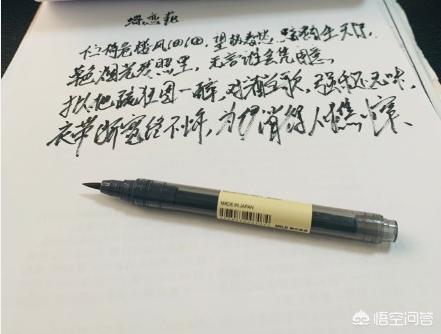 蝶恋花
伫倚危楼风细细,望极春愁,黯黯生天际,
草色烟光残照里,无言谁会凭阑意。
拟把疏狂图一醉,对酒当歌,强乐还无味,
衣带渐宽终不悔,为伊消得人憔悴。
MADE IN JAPAN
悟空问答